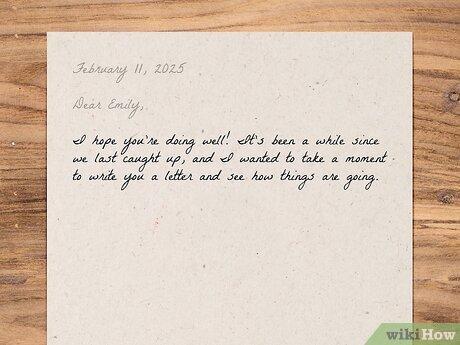 February 11, 2025
Dear Emily,
I hope you're doing well! It's been a while since
we last caught up, and I wanted to take a moment
to write you a letter and see how things are going.
wikiHow